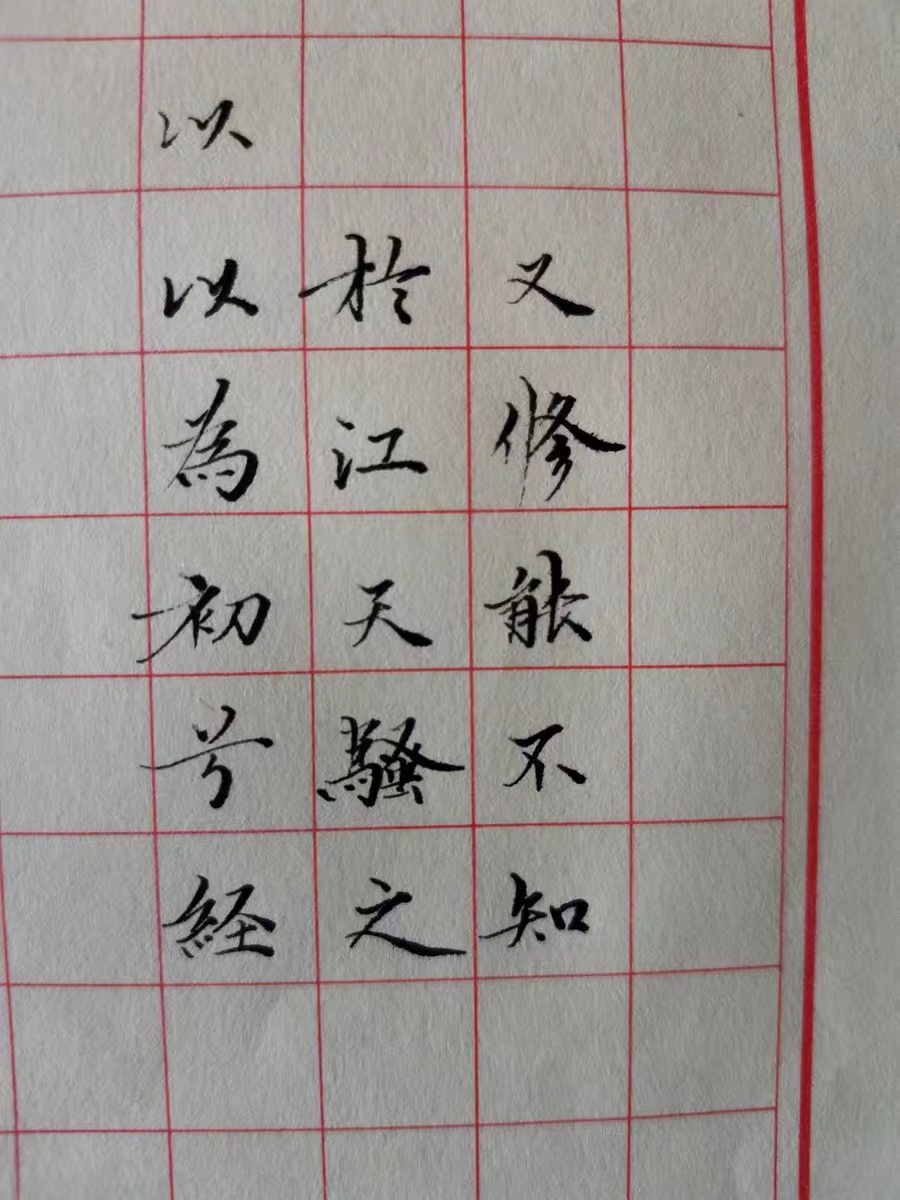 又修能不知
於江天騷之
以以為初兮経